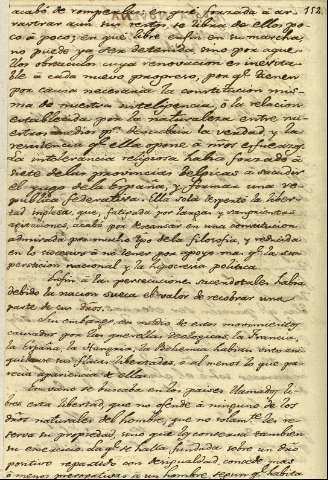 acabo de romperlas, en que, forzada á ar-
rastrar aun sus restos, se libra de ellos po-
co á poco; en que libre enfin en su marcha,
no puede ya ser detenida, sino por aque-
llos obstaculos cuya renovacion es inevita-
ble á cada nuevo progreso, por qe. tienen
por causa necesaria la constitucion mis-
ma de nuestra inteligencia, ó la relacion
establecida por la naturaleza entre nu-
estros medios pa. descubrir la verdad, y la
resistencia qe. ella opone á nros esfuerzos.
La intolerancia religiosa habia forzado á
siete de las provincias belgicas á sacudir
el yugo de la España, y formar una re-
publica federativa. Ella sola desperto la liber-
tad inglesa, que, fatigada por largas y sangrientas
agitaciones, acabo por descansar en una constitucion
admirada por mucho tpo de la filosofia, y reducida
en lo sucesivo á no tener por apoyo mas qe. la su-
persticion nacional y la hipocresia politica.
Enfin á las persecuciones sacerdotales habia
debido la nacion sueca el valor de recobrar una
parte de sus dros.
Sin embargo, en medio de estos movimientos,
causados por las querellas teologicas, la Francia,
la España, la Hungria, la Bohemia habian visto an-
iquilarse sus debiles libertades, ó al menos lo que pa-
recia apariencia de ellas.
En vano se buscaba en los paises llamados li-
bres esta libertad, que no ofende á ninguno de los
dros naturales del hombre, que no solamte. les re-
serva su propiedad, sino que les conserva tambien
su exercicio. La qe. se halla fundada sobre un dro
positivo repartido con desigualdad, concede mas
ó menos prerogativas á un hombre segun qe. habita
152